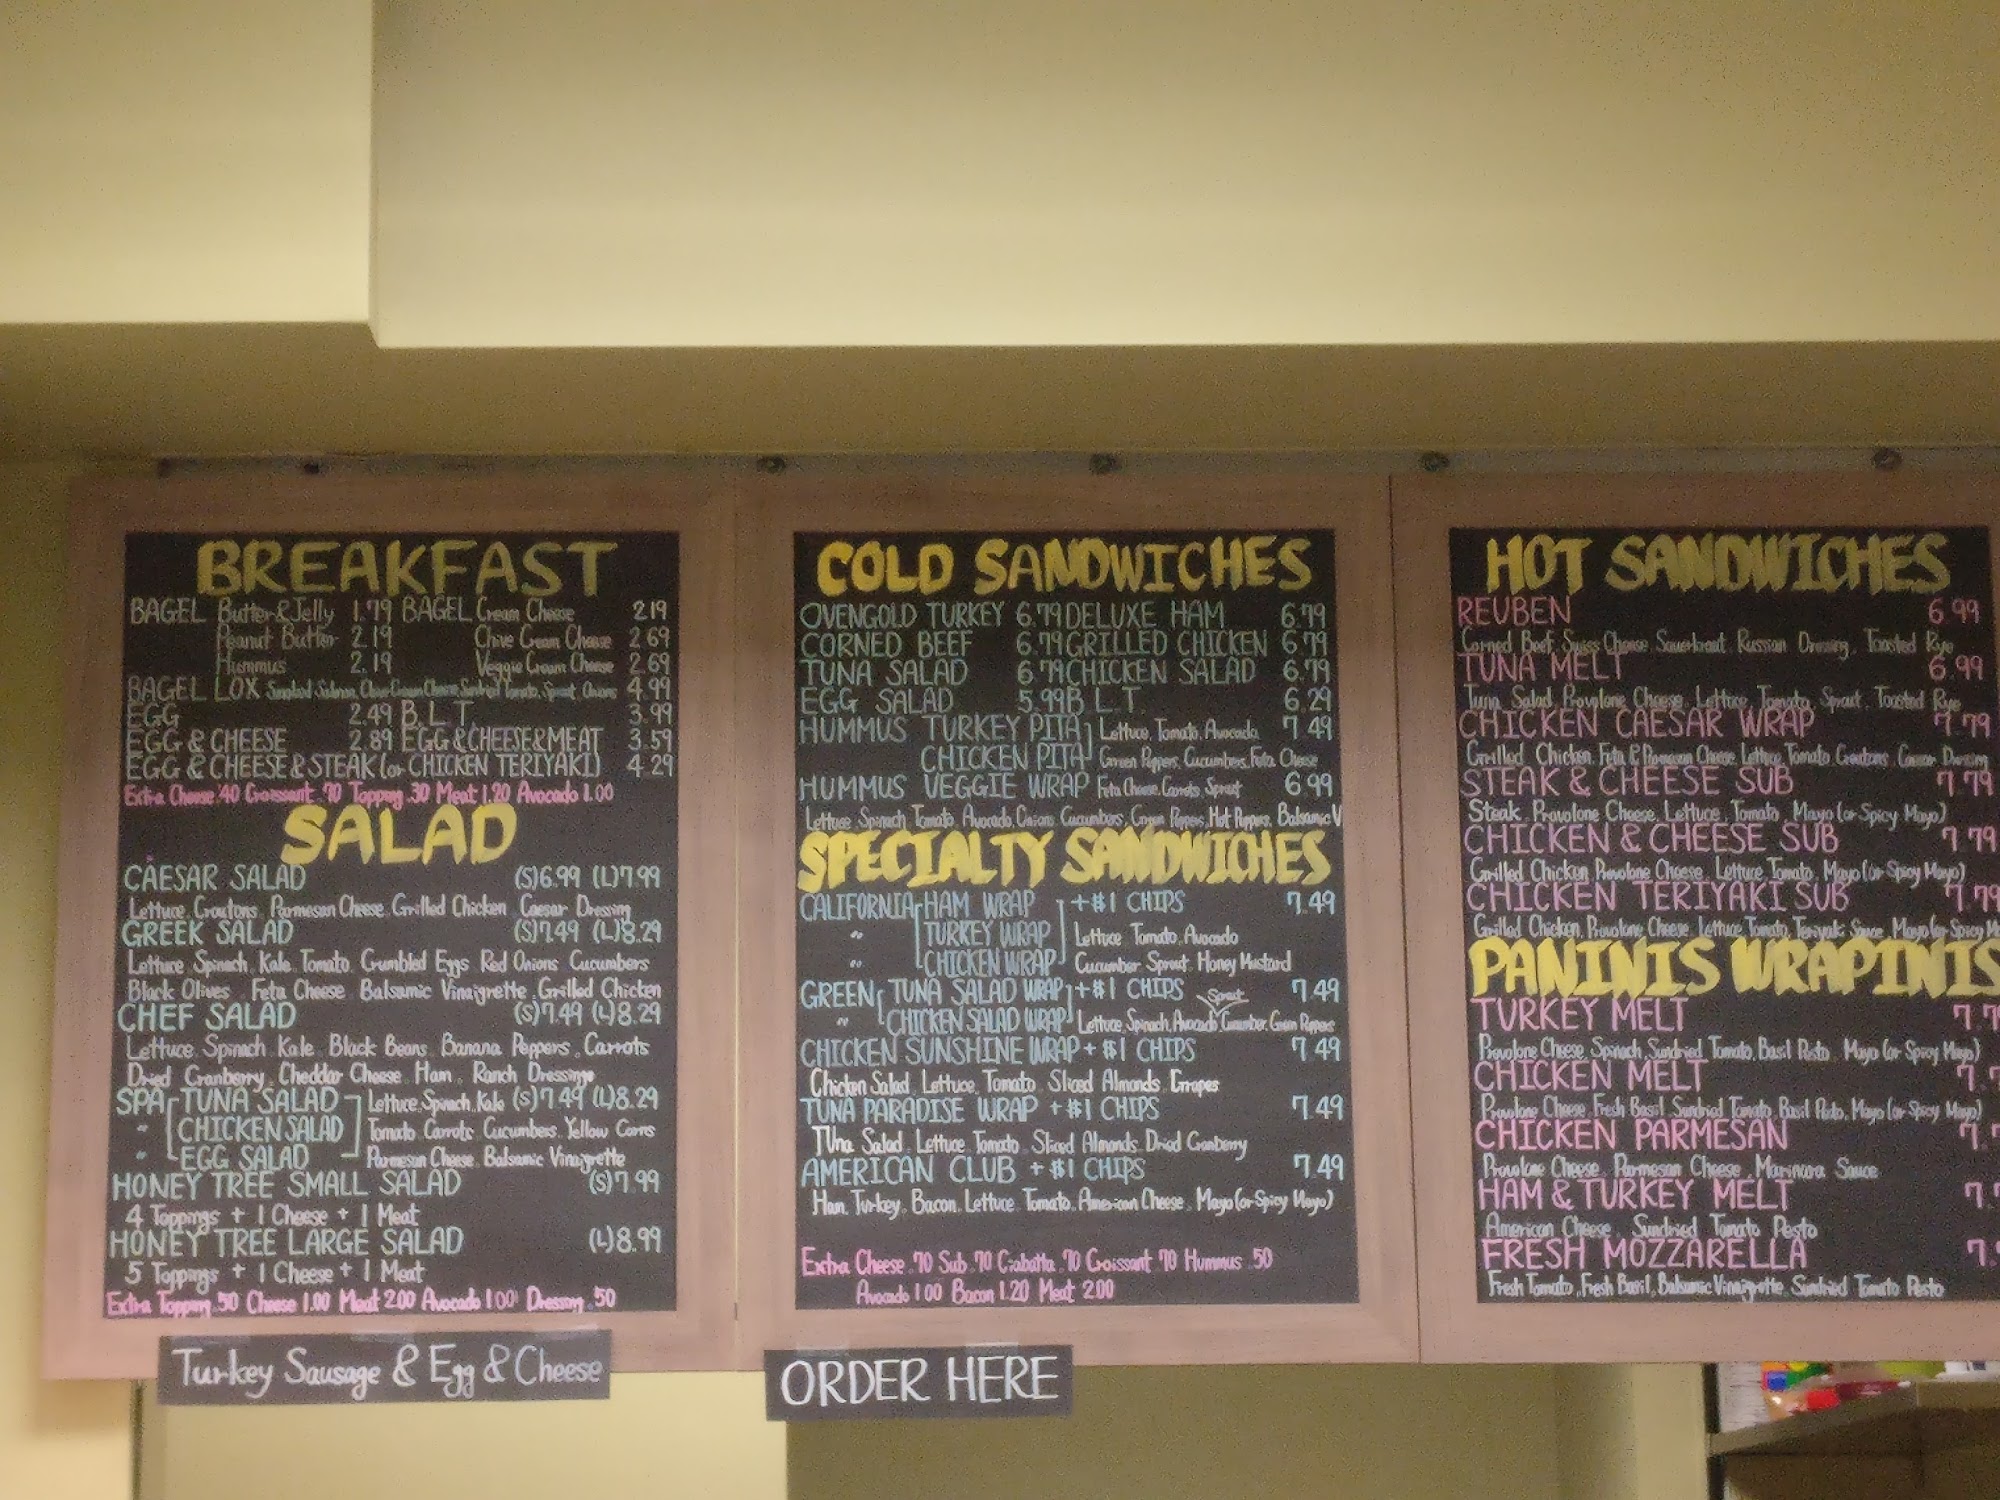 BREAKFAST
BAGEL Butter & Jelly 1.79 BAGEL Cream Cheese 2.19
Peanut Butter 2.19 Chive Cream Cheese 2.69
Hummus 2.19 Veggie Cream Cheese 2.69
BAGEL LOX Smoked Salmon, Chive Cream Cheese, Sundried Tomato, Sprout, Onions 4.99
EGG 2.49 B.L.T. 3.99
EGG & CHEESE 2.89 EGG & CHEESE & MEAT 3.59
EGG & CHEESE & STEAK (or CHICKEN TERIYAKI) 4.29
Extra Cheese .40 Croissant .70 Topping .30 Meat 1.20 Avocado 1.00
SALAD
CAESAR SALAD (S)6.99 (L)7.99
Lettuce, Croutons, Parmesan Cheese, Grilled Chicken, Caesar Dressing
GREEK SALAD (S)7.49 (L)8.29
Lettuce, Spinach, Kale, Tomato, Crumbled Eggs, Red Onions, Cucumbers
Black Olives, Feta Cheese, Balsamic Vinaigrette, Grilled Chicken
CHEF SALAD (S)7.49 (L)8.29
Lettuce, Spinach, Kale, Black Beans, Banana Peppers, Carrots
Dried Cranberry, Cheddar Cheese, Ham, Ranch Dressing
SPA TUNA SALAD Lettuce, Spinach, Kale (S)7.49 (L)8.29
" CHICKEN SALAD Tomato, Carrots, Cucumbers, Yellow Corns
" EGG SALAD Parmesan Cheese, Balsamic Vinaigrette
HONEY TREE SMALL SALAD (S)7.99
4 Toppings + 1 Cheese + 1 Meat
HONEY TREE LARGE SALAD (L)8.99
5 Toppings + 1 Cheese + 1 Meat
Extra Topping .50 Cheese 1.00 Meat 2.00 Avocado 1.00 Dressing .50
Turkey Sausage & Egg & Cheese
COLD SANDWICHES
OVENGOLD TURKEY 6.79 DELUXE HAM 6.79
CORNED BEEF 6.79 GRILLED CHICKEN 6.79
TUNA SALAD 6.79 CHICKEN SALAD 6.79
EGG SALAD 5.99 B.L.T. 6.29
HUMMUS TURKEY PITA Lettuce, Tomato, Avocado 7.49
CHICKEN PITA Green Peppers, Cucumbers, Feta Cheese
HUMMUS VEGGIE WRAP Feta Cheese, Carrots, Sprout 6.99
Lettuce, Spinach, Tomato, Avocado, Onions, Cucumbers, Green Peppers, Hot Peppers, Balsamic V
SPECIALTY SANDWICHES
CALIFORNIA HAM WRAP + $1 CHIPS 7.49
" TURKEY WRAP Lettuce, Tomato, Avocado
" CHICKEN WRAP Cucumber, Sprout, Honey Mustard
GREEN TUNA SALAD WRAP + $1 CHIPS Sprout 7.49
" CHICKEN SALAD WRAP Lettuce, Spinach, Avocado, Cucumber, Green Peppers
CHICKEN SUNSHINE WRAP + $1 CHIPS 7.49
Chicken Salad, Lettuce, Tomato, Sliced Almonds, Grapes
TUNA PARADISE WRAP + $1 CHIPS 7.49
Tuna Salad, Lettuce, Tomato, Sliced Almonds, Dried Cranberry
AMERICAN CLUB + $1 CHIPS 7.49
Ham, Turkey, Bacon, Lettuce, Tomato, American Cheese, Mayo (or Spicy Mayo)
Extra Cheese .70 Sub .70 Ciabatta .70 Croissant .70 Hummus .50
Avocado 1.00 Bacon 1.20 Meat 2.00
ORDER HERE
HOT SANDWICHES
REUBEN 6.99
Corned Beef, Swiss Cheese, Sauerkraut, Russian Dressing, Toasted Rye
TUNA MELT 6.99
Tuna Salad, Provolone Cheese, Lettuce, Tomato, Sprout, Toasted Rye
CHICKEN CAESAR WRAP 7.79
Grilled Chicken, Feta & Parmesan Cheese, Lettuce, Tomato, Croutons, Caesar Dressing
STEAK & CHEESE SUB 7.79
Steak, Provolone Cheese, Lettuce, Tomato, Mayo (or Spicy Mayo)
CHICKEN & CHEESE SUB 7.79
Grilled Chicken, Provolone Cheese, Lettuce, Tomato, Mayo (or Spicy Mayo)
CHICKEN TERIYAKI SUB 7.79
Grilled Chicken, Provolone Cheese, Lettuce, Tomato, Teriyaki Sauce, Mayo (or Spicy M
PANINIS WRAPINIS
TURKEY MELT 7.7
Provolone Cheese, Spinach, Sundried Tomato, Basil Pesto, Mayo (or Spicy Mayo)
CHICKEN MELT 7.7
Provolone Cheese, Fresh Basil, Sundried Tomato, Basil Pesto, Mayo (or Spicy Mayo)
CHICKEN PARMESAN 7.7
Provolone Cheese, Parmesan Cheese, Marinara Sauce
HAM & TURKEY MELT 7.7
American Cheese, Sundried Tomato Pesto
FRESH MOZZARELLA 7.
Fresh Tomato, Fresh Basil, Balsamic Vinaigrette, Sundried Tomato Pesto